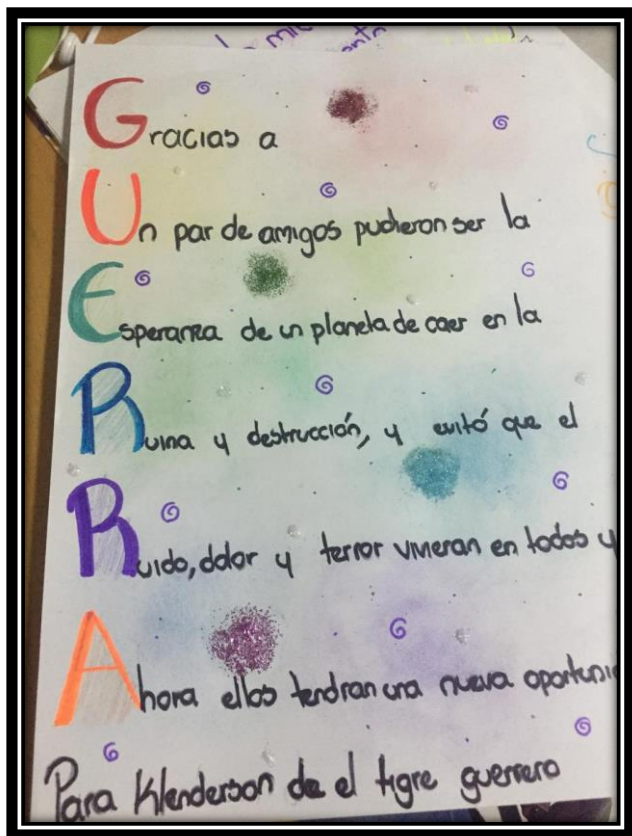 Gracias a
Un par de amigos pudieron ser la
Esperanza de un planeta de caer en la
Ruina y destrucción, y evitó que el
Ruido, dolor y terror vivieran en todos y
Ahora ellos tendran una nueva oportuni
Para Klenderson de el tigre guerrero